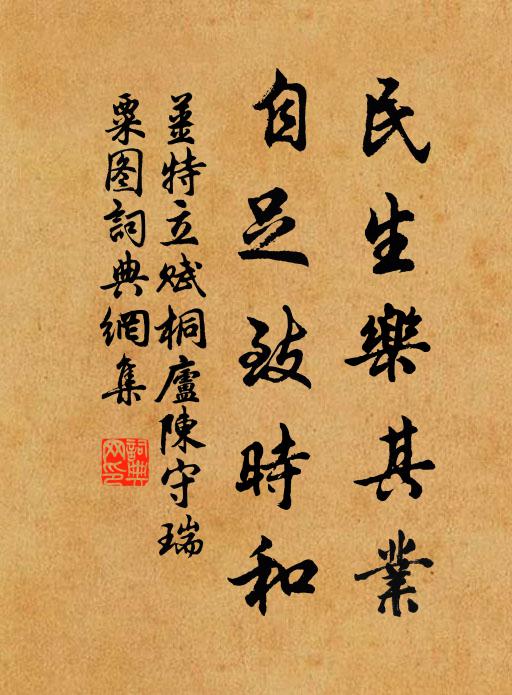 民生樂其業
自足致時和
姜特立赋桐廬陳守瑞
粟图詞典網集
詞典
网印